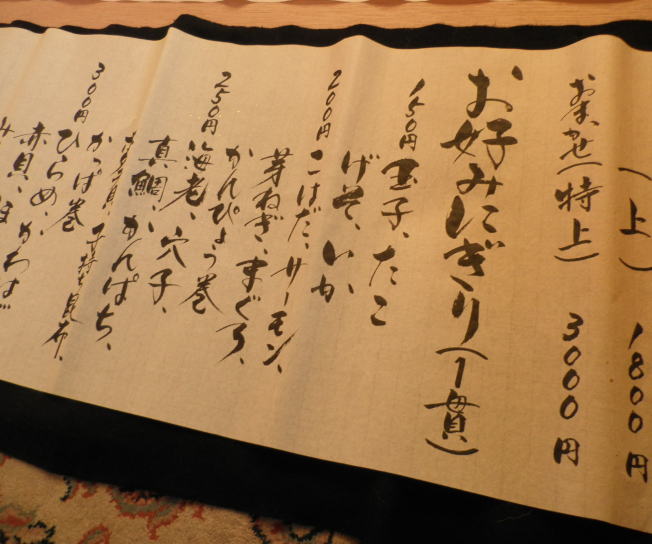 （上） 1800円
おまかせ（特上） 3000円
お好みにぎり（1貫）
150円 玉子、たこ
げそ、いか
200円 こはだ、サーモン、
芽ねぎ、まぐろ、
かんぴょう巻
250円 海老、穴子、
真鯛、かんぱち、
子持ち昆布、
かっぱ巻
300円 ひらめ、かわはぎ
赤貝、